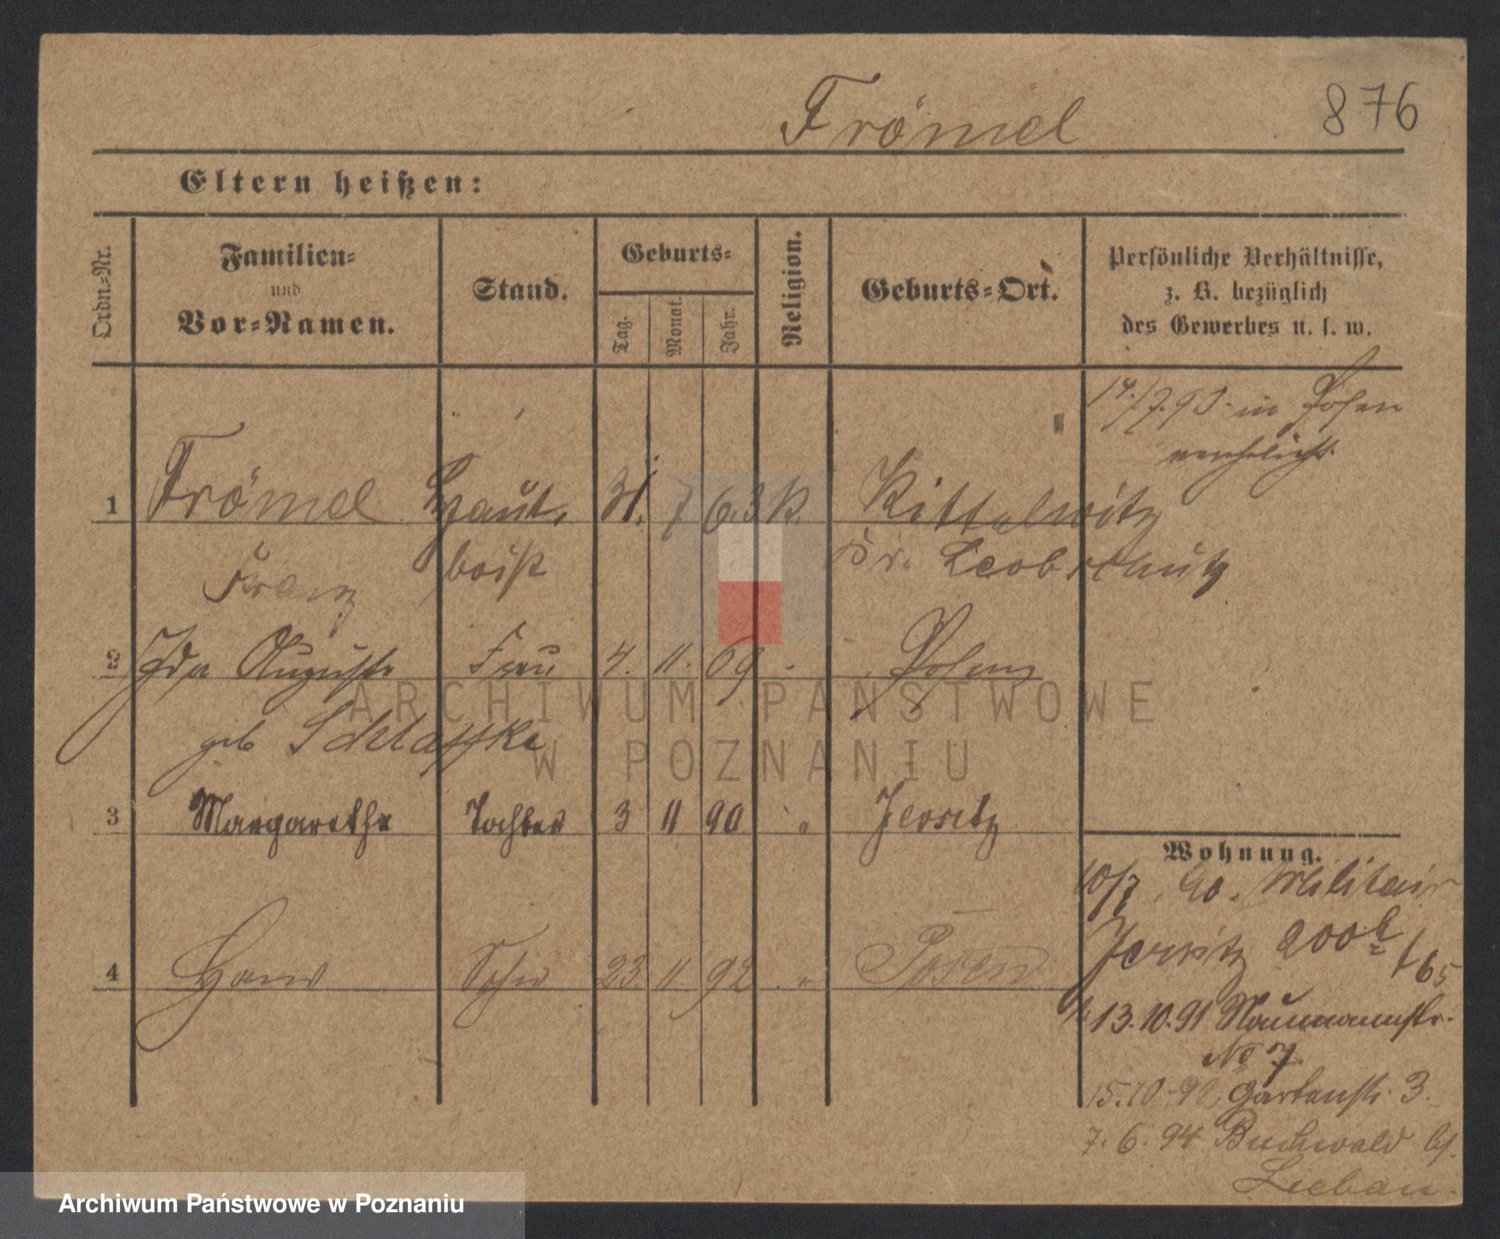 Frömel 876
Eltern heißen:
Ordn.-Nr.
Familien-
und
Vor-Namen.
Stand.
Geburts-
Tag.
Monat.
Jahr.
Religion.
Geburts-Ort.
Persönliche Verhältnisse,
z. B. bezüglich
des Gewerbes u. s. w.
14./7.90. in Posen
verehelicht
1 Frömel Haut- 31. 7 63 k. Kittelwitz
Franz boist Kr. Leobschütz
2 Ida Auguste Frau 4. 11. 69 - Posen
geb Schlaffke
3 Margarethe Tochter 3 11 90 " Jersitz
Wohnung.
10/7. 90. Militair
Jersitz 200b
/65
4 Hans Sohn 23. 11. 92 " Posen
13.10.91 Naumannstr.
No 7.
15.10.92 Gartenstr. 3.
7. 6. 94 Buchwald b/.
Liebau.
ARCHIWUM PAŃSTWOWE
W POZNANIU
Archiwum Państwowe w Poznaniu